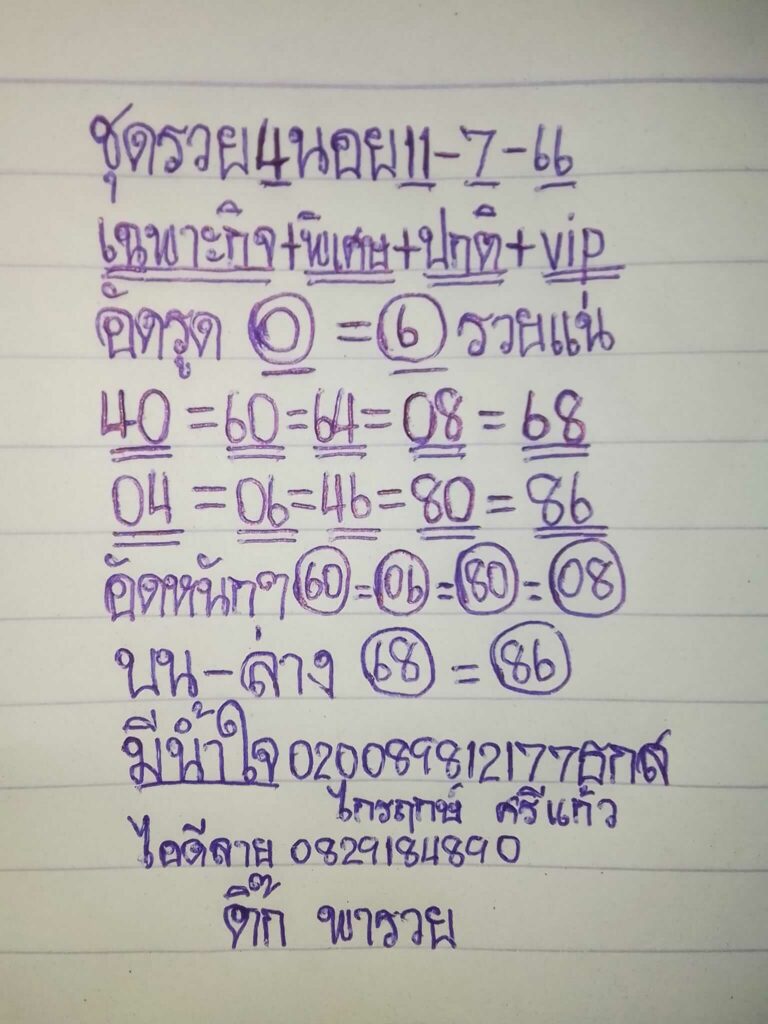 ชุดรวย4นอย11-7-66
เฉพาะกิจ+พิเศษ+ปกติ+vip
อัดรูด 0 = 6 รวยแน่
40 = 60 = 64 = 08 = 68
04 = 06 = 46 = 80 = 86
อัดหนักๆ 60 = 06 = 80 = 08
บน-ล่าง 68 = 86
มีน้ำใจ 020089812177 ธกส
ไกรฤกษ์ ศรีแก้ว
ไอดีลาย 0829184890
ติ๊ก พารวย